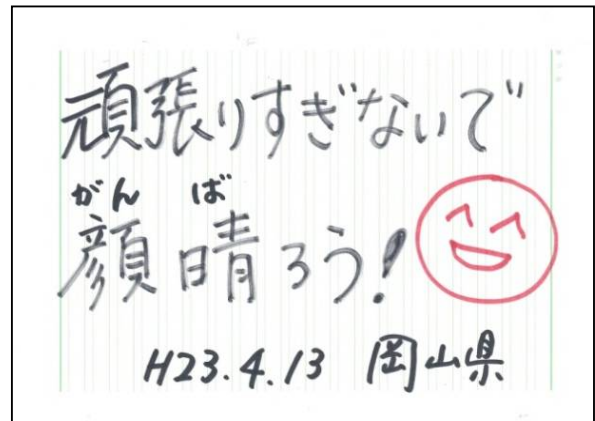 頑張りすぎないで
がんば
顔晴ろう!
H23.4.13 岡山県